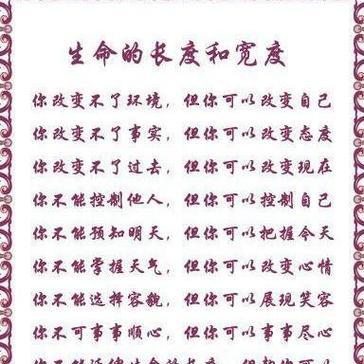 生命的长度和宽度
你改变不了环境，但你可以改变自己
你改变不了事实，但你可以改变态度
你改变不了过去，但你可以改变现在
你不能控制他人，但你可以控制自己
你不能预知明天，但你可以把握今天
你不能掌握天气，但你可以改变心情
你不能选择容貌，但你可以展现笑容
你不可事事顺心，但你可以事事尽心